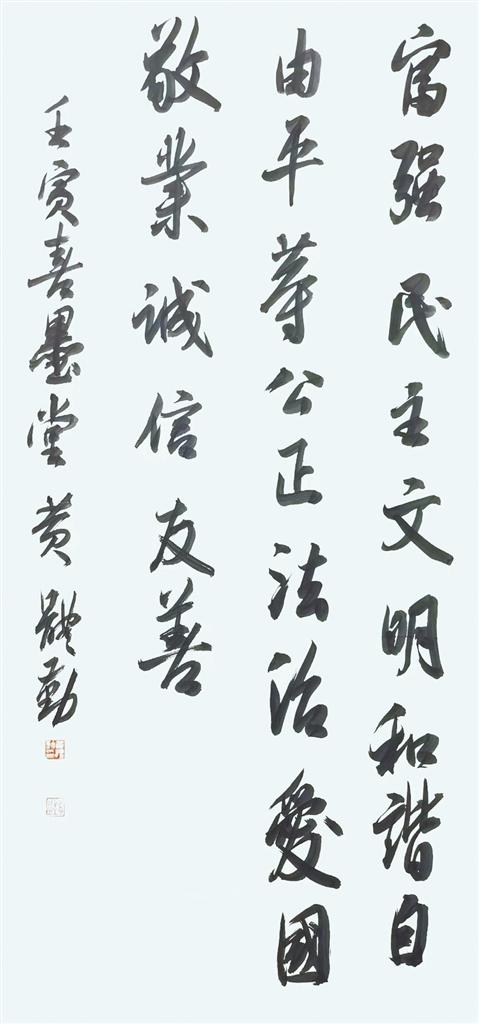 富强民主文明和諧自
由平等公正法治愛國
敬業誠信友善
壬寅喜墨堂黄體勤